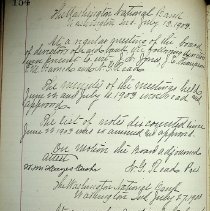 154
The Washington National Bank
Washington Ind July 13, 1908
At a regular meeting of the Board
of directors of said bank the following directors
were present to wit: A Jones,
and Read
The minutes of the meetings held
June 22 and July 6 1908 were read and
approved
The list of notes discounted since
June 22 1908 was examined and approved.
On motion the Board adjourned
Attest
Read Pres
The Washington National Bank
Washington Ind July 27, 1908